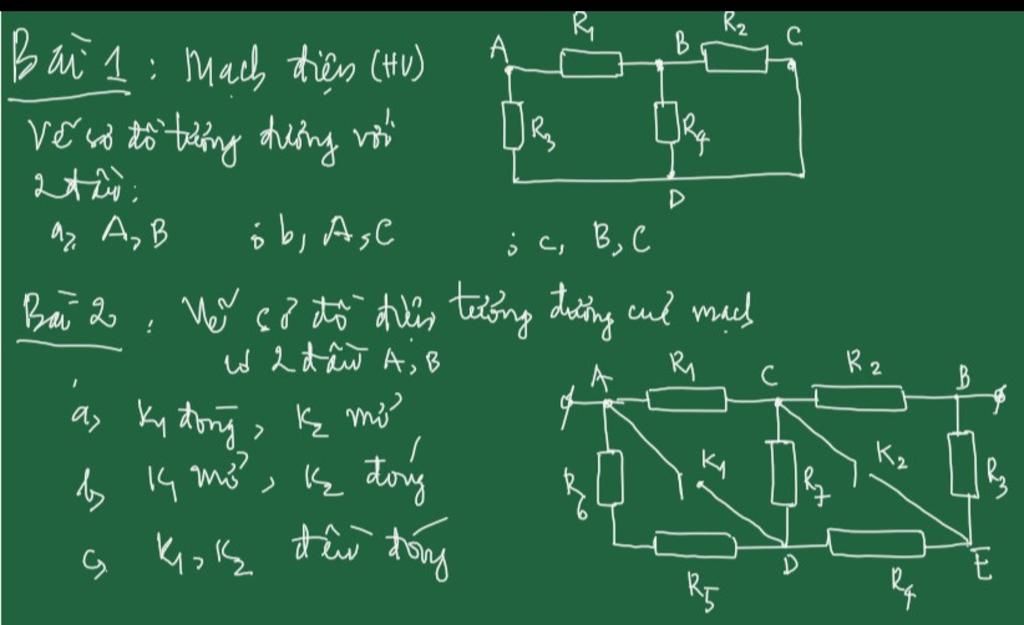 Bài 1 : Mạch điện (HV)
Vẽ sơ đồ tương đương với
2 đầu:
a, A, B ; b, A, C ; c, B, C
A R1 B R2 C
R3 R4
D
Bài 2 : Vẽ sơ đồ điện tương đương của mạch
với 2 đầu A, B
a, K1 đóng, K2 mở
b, K1 mở, K2 đóng
c, K1, K2 đều đóng
A R1 C R2 B
R6 K1 R7 K2 R3
R5 D R4 E